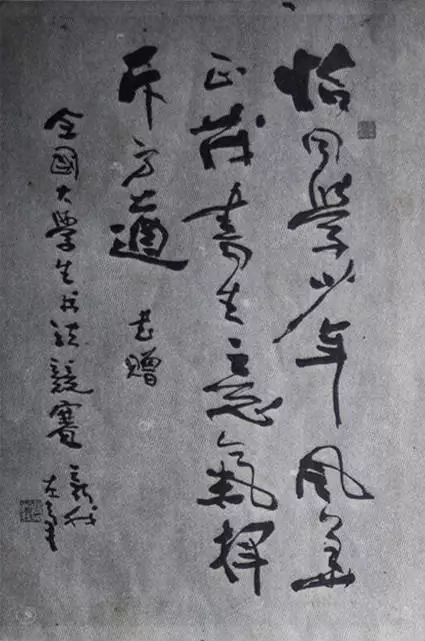 恰同學少年風華
正茂書生意氣揮
斥方遒 书贈
全國大學生书法競賽 新我
左筆